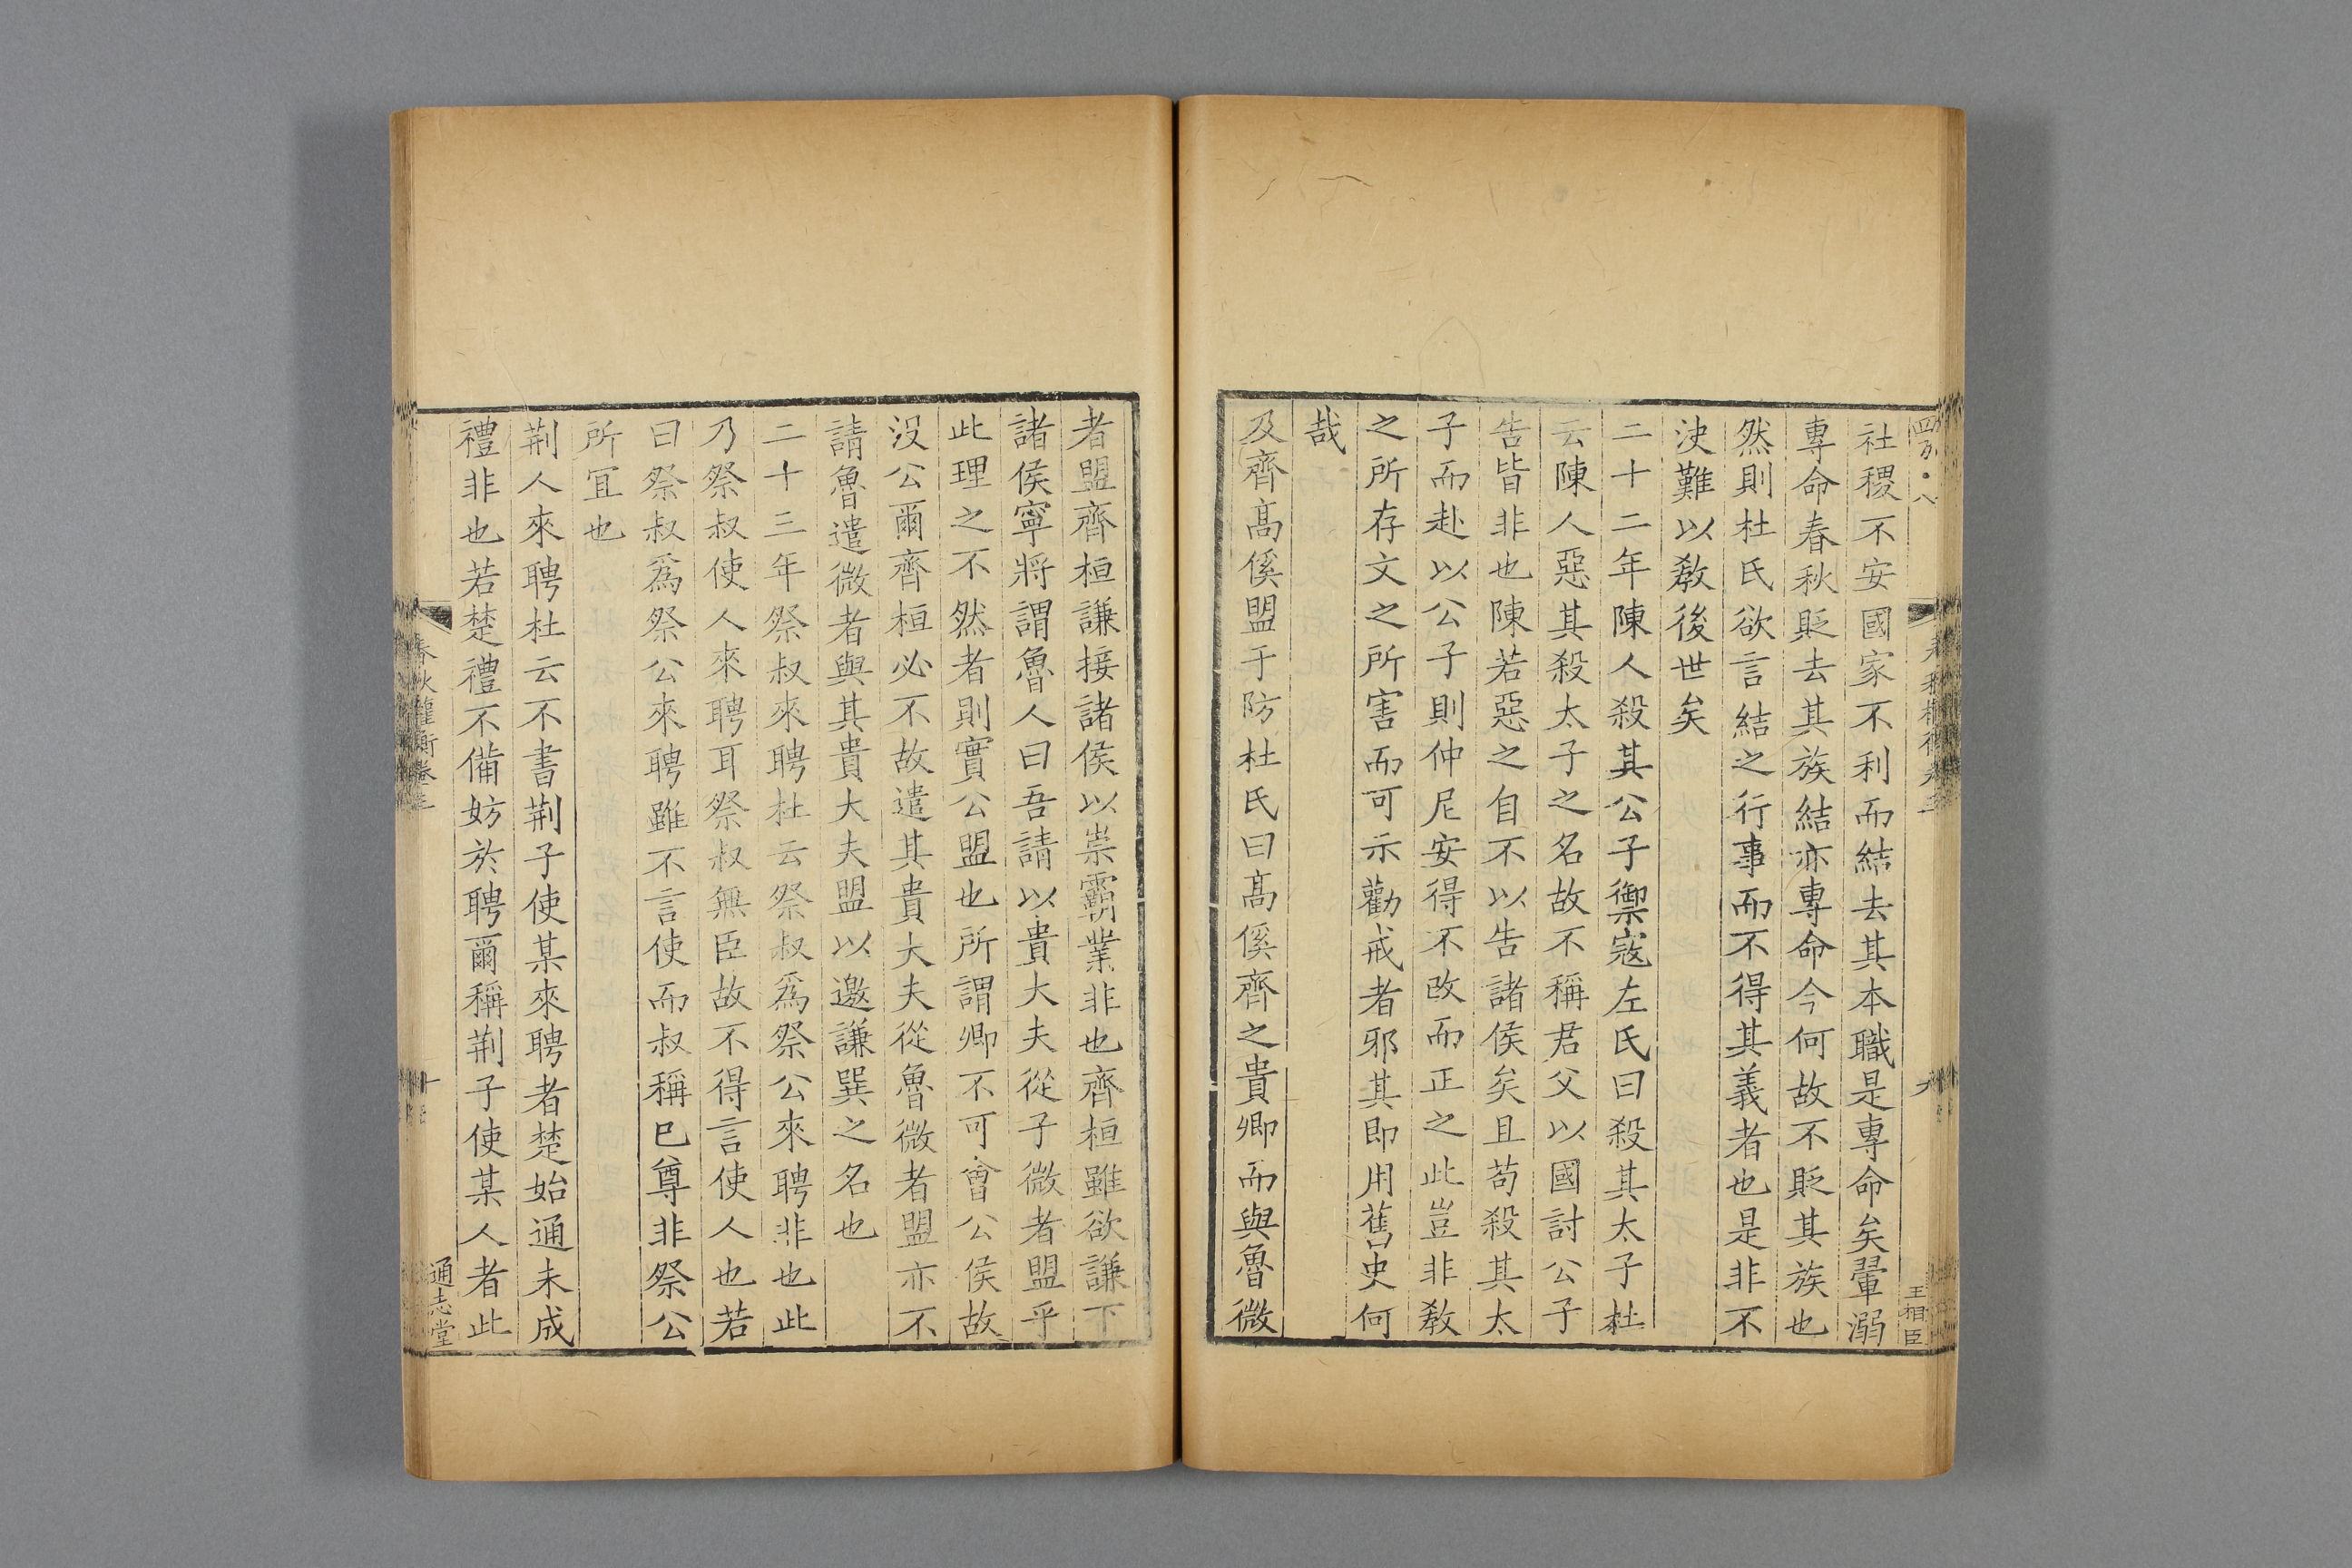 社稷不安國家不利而結去其本職是專命矣翬溺
專命春秋貶去其族結亦專命今何故不貶其族也
然則杜氏欲言結之行事而不得其義者也是非不
決難以敎後世矣
二十二年陳人殺其公子禦寇左氏曰殺其太子杜
云陳人惡其殺太子之名故不稱君父以國討公子
告皆非也陳若惡之自不以告諸侯矣且苟殺其太
子而赴以公子則仲尼安得不改而正之此豈非敎
之所存文之所害而可示勸戒者邪其即用舊史何
哉
及齊高傒盟于防杜氏曰高傒齊之貴卿而與魯微
王相臣
者盟齊桓謙接諸侯以崇霸業非也齊桓雖欲謙下
諸侯寧將謂魯人曰吾請以貴大夫從子微者盟乎
此理之不然者則實公盟也所謂卿不可會公侯故
沒公爾齊桓必不故遣其貴大夫從魯微者盟亦不
請魯遣微者與其貴大夫盟以邀謙巽之名也
二十三年祭叔來聘杜云祭叔爲祭公來聘非也此
乃祭叔使人來聘耳祭叔無臣故不得言使人也若
曰祭叔爲祭公來聘雖不言使而叔稱已尊非祭公
所宜也
荆人來聘杜云不書荆子使某來聘者楚始通未成
禮非也若楚禮不備妨於聘爾稱荆子使某人者此
春秋權衡卷三
十
通志堂